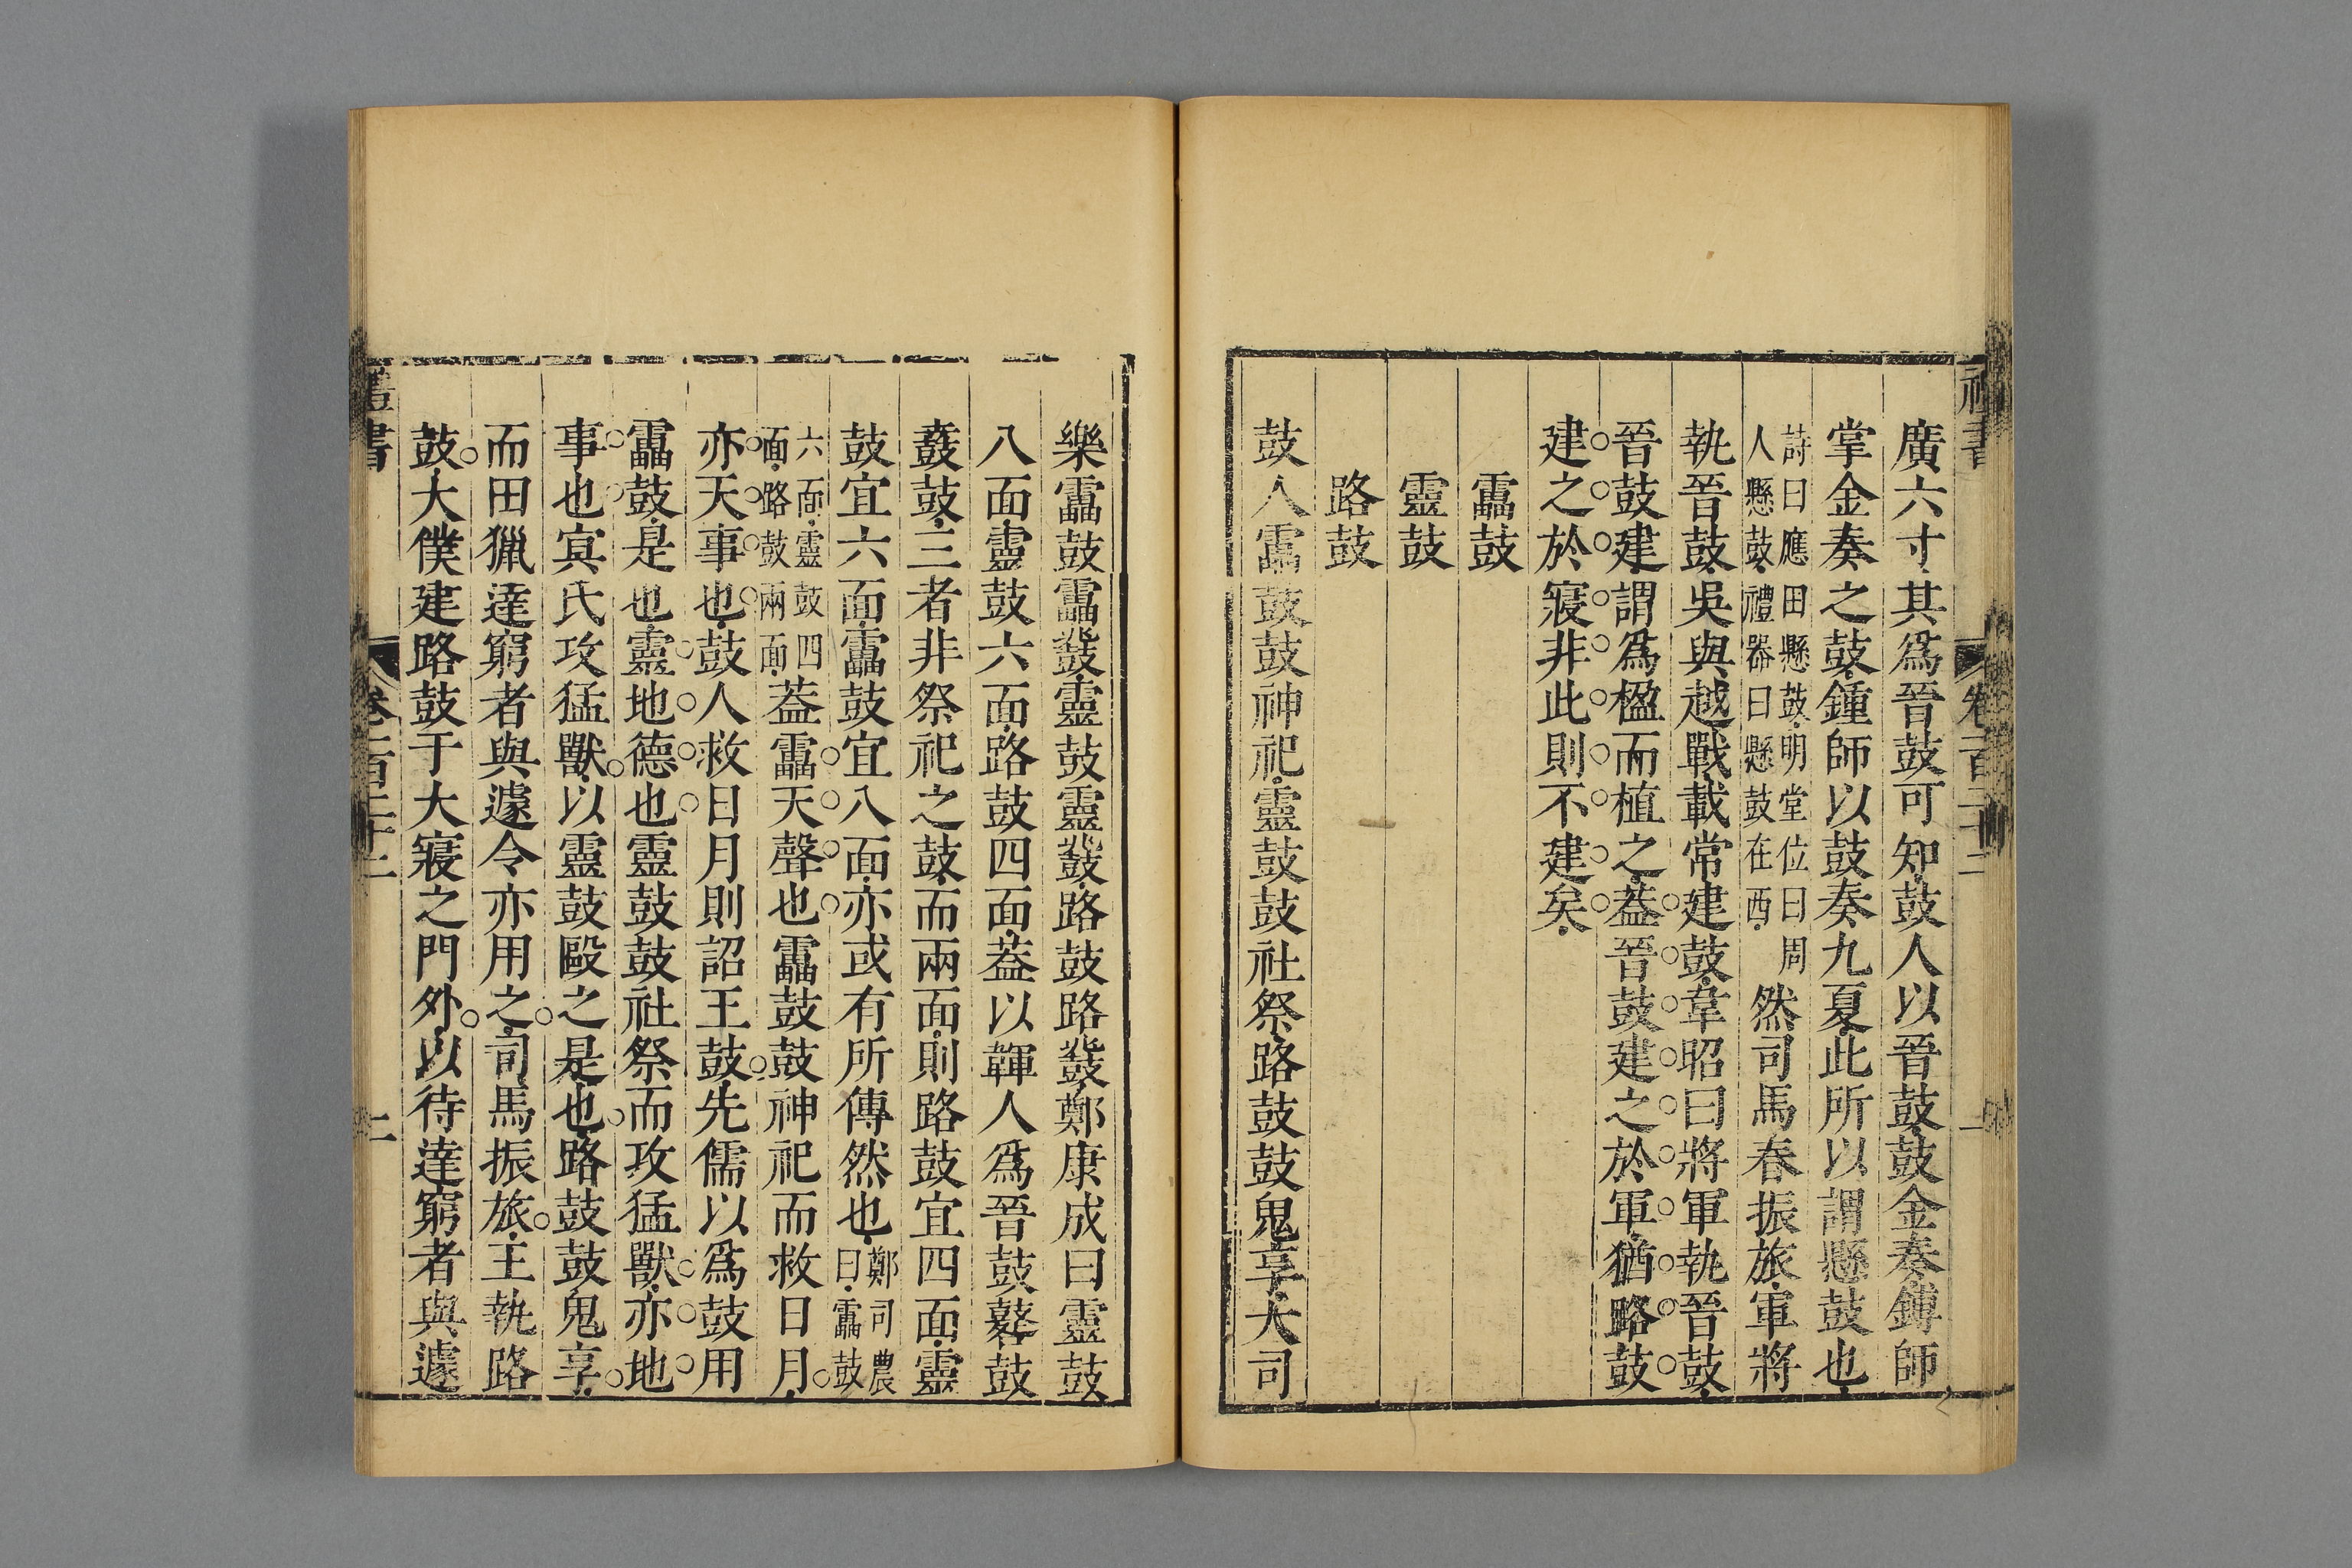 廣六寸其爲晉鼓可知鼓人以晉鼓鼓金奏鎛師
掌金奏之鼓鍾師以鼓奏九夏此所以謂懸鼓也
詩曰應田懸鼓明堂位曰周
人懸鼓禮器曰懸鼓在西
然司馬春振旅軍將
執晉鼓吳與越戰載常建鼓韋昭曰將軍執晉鼓
晉鼓建謂爲楹而植之蓋晉鼓建之於軍猶路鼓
建之於寢非此則不建矣
靁鼓
靈鼓
路鼓
鼓人靁鼓鼓神祀靈鼓鼓社祭路鼓鼓鬼享大司
樂靁鼓靁鼗靈鼓靈鼗路鼓路鼗鄭康成曰靈鼓
八面靈鼓六面路鼓四面蓋以韗人爲晉鼓鼛鼓
鼖鼓三者非祭祀之鼓而兩面則路鼓宜四面靈
鼓宜六面靁鼓宜八面亦或有所傳然也
鄭司農
曰靁鼓
六面靈鼓四
面路鼓兩面
蓋靁天聲也靁鼓鼓神祀而救日月
亦天事也鼓人救日月則詔王鼓先儒以爲鼓用
靁鼓是也靈地德也靈鼓鼓社祭而攻猛獸亦地
事也冥氏攻猛獸以靈鼓毆之是也路鼓鼓鬼享
而田獵達窮者與遽令亦用之司馬振旅王執路
鼓大僕建路鼓于大寢之門外以待達窮者與遽